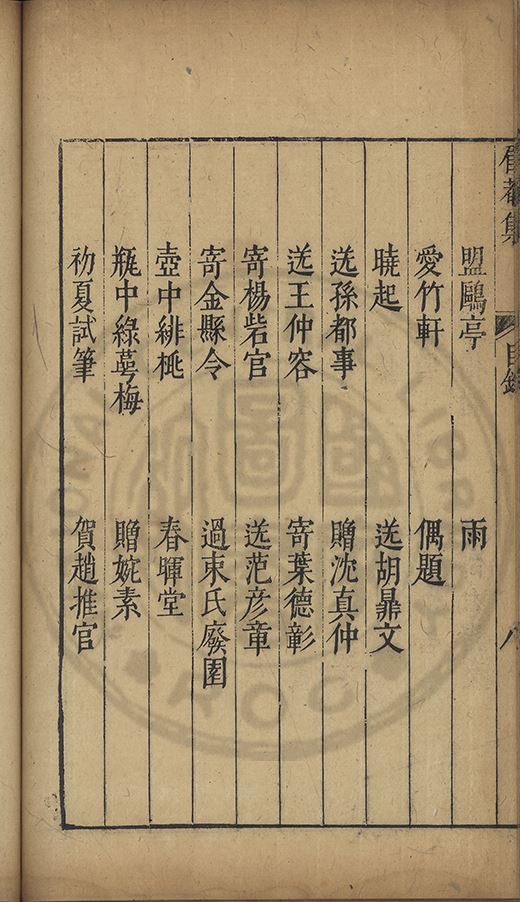 眉菴集 目錄 八
盟鷗亭 雨
愛竹軒 偶題
曉起 送胡鼎文
送孫都事 贈沈真仲
送王仲容 寄葉德彰
寄楊砦官 送范彥章
寄金縣令 過束氏廢園
壺中緋桃 春暉堂
瓶中綠萼梅 贈婉素
初夏試筆 賀趙推官